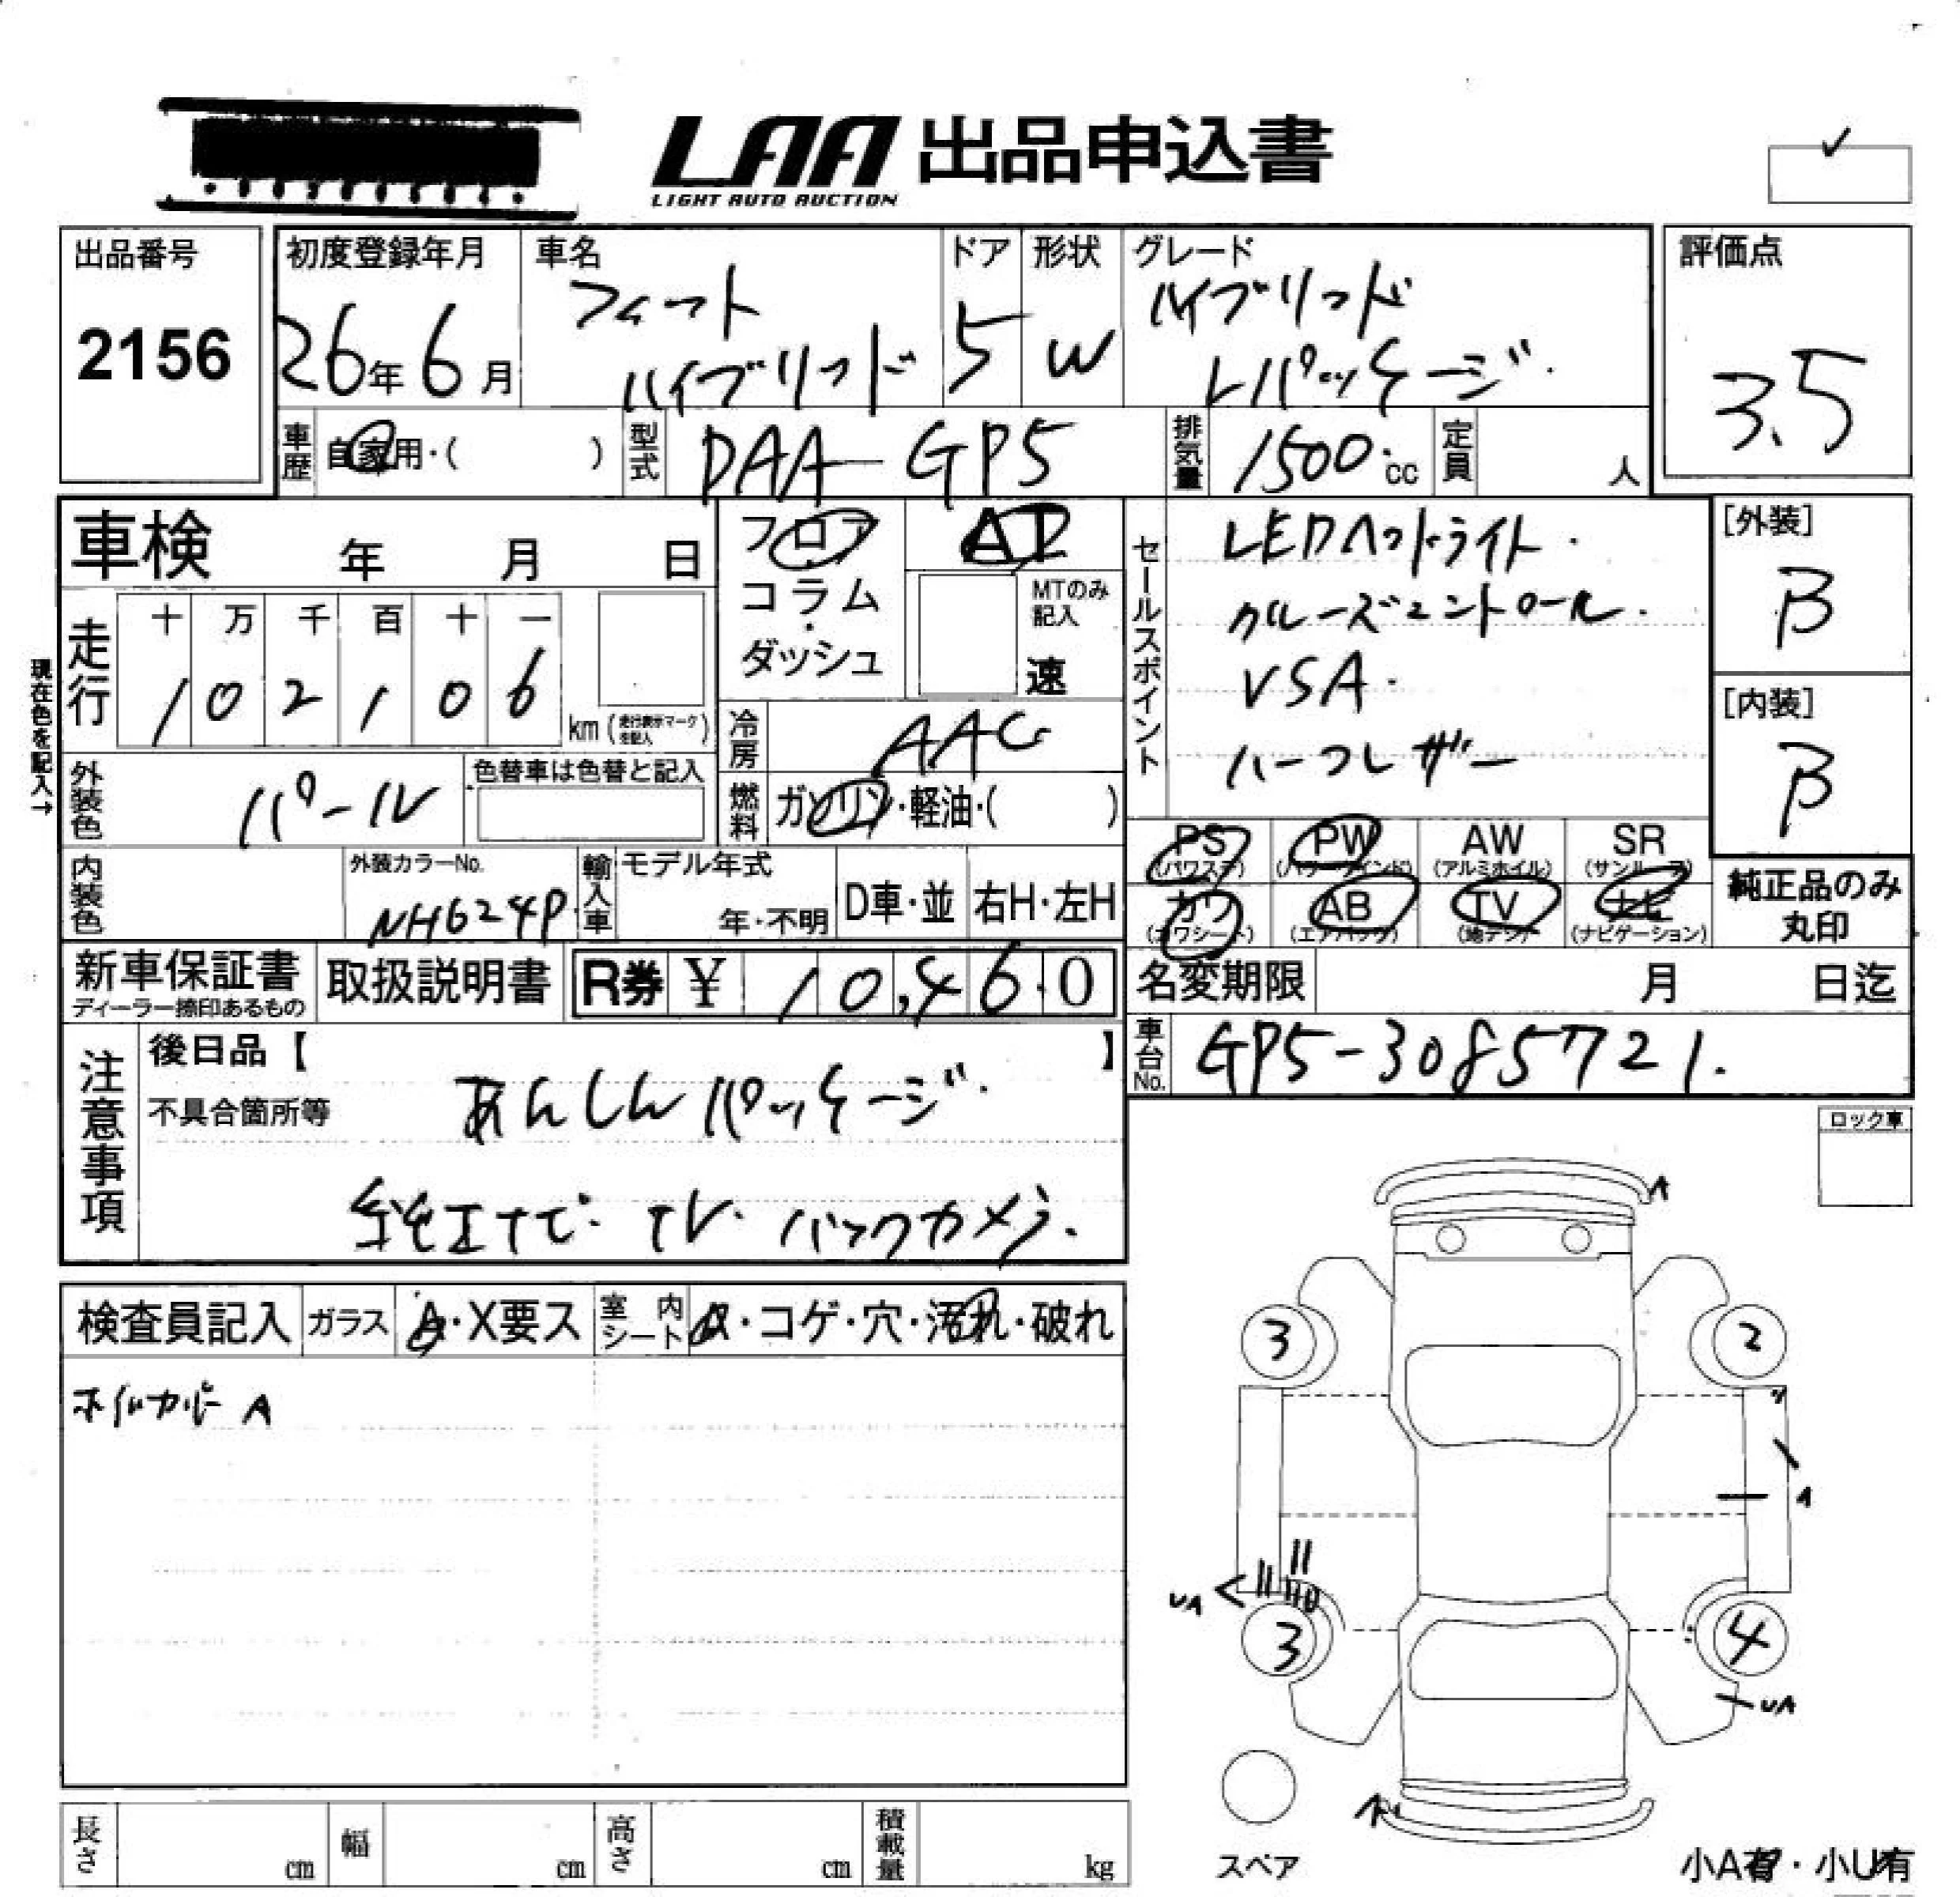 LAA 出品申込書
LIGHT AUTO AUCTION
出品番号
2156
初度登録年月
26年6月
車名
フィット
ハイブリッド
ドア
5
形状
W
グレード
ハイブリッド
Lパッケージ.
評価点
3.5
車歴
自家用・( )
型式
DAA-GP5
排気量
1500cc
定員
人
車検 年 月 日
フロア
コラム
ダッシュ
AT
MTのみ
記入
速
セールスポイント
LEDヘッドライト.
クルーズコントロール.
VSA.
ハーフレザー
[外装]
B
[内装]
B
現在色を記入→
走行
十 万 千 百 十 一
1 0 2 1 0 6
km (走行表示マークを記入)
冷房
AAC
外装色
パール
色替車は色替と記入
燃料
ガソリン・軽油・( )
PS
(パワステ)
PW
(パワーウインド)
AW
(アルミホイル)
SR
(サンルーフ)
カワ
(カワシート)
AB
(エアバック)
TV
(地デジ)
ナビ
(ナビゲーション)
純正品のみ
丸印
内装色
外装カラーNo.
NH624P
輸入車
モデル年式
年・不明
D車・並
右H・左H
新車保証書
ディーラー捺印あるもの
取扱説明書
R券 ¥ 10,460
名変期限 月 日迄
車台No.
GP5-3085721.
注意事項
後日品【 】
不具合箇所等
あんしんパッケージ.
純正ナビ. TV. バックカメラ.
ロック車
検査員記入
ガラス
A・X要ス
室内シート
A・コゲ・穴・汚れ・破れ
ホイルカバー A
A
3
2
A
UA
3
4
UA
A
スペア
長さ cm
幅 cm
高さ cm
積載量 kg
小A有・小U有